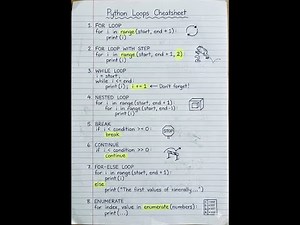 Python Loops Cheatsheet
1. FOR LOOP
for i in range(start, end + 1):
print(i)
2. FOR LOOP WITH STEP
for i in range(start, end + 1, 2):
print(i)
3. WHILE LOOP
i = start;
while i <= end
print(i); i += 1 ← Don't forget!
4. NESTED LOOP
for i in range(start, end + 1)
for i in range(start, end - i):
print(i)
5. BREAK
if i < condition >= 0 :
break
STOP
6. CONTINUE
if i < condition >> 0 :
continue
7. FOR-ELSE LOOP
for i in range(start, end + 1):
print(i)
else
print("The first values of
8. ENUMERATE
for index, value in enumerate(numbers) :
print(...)